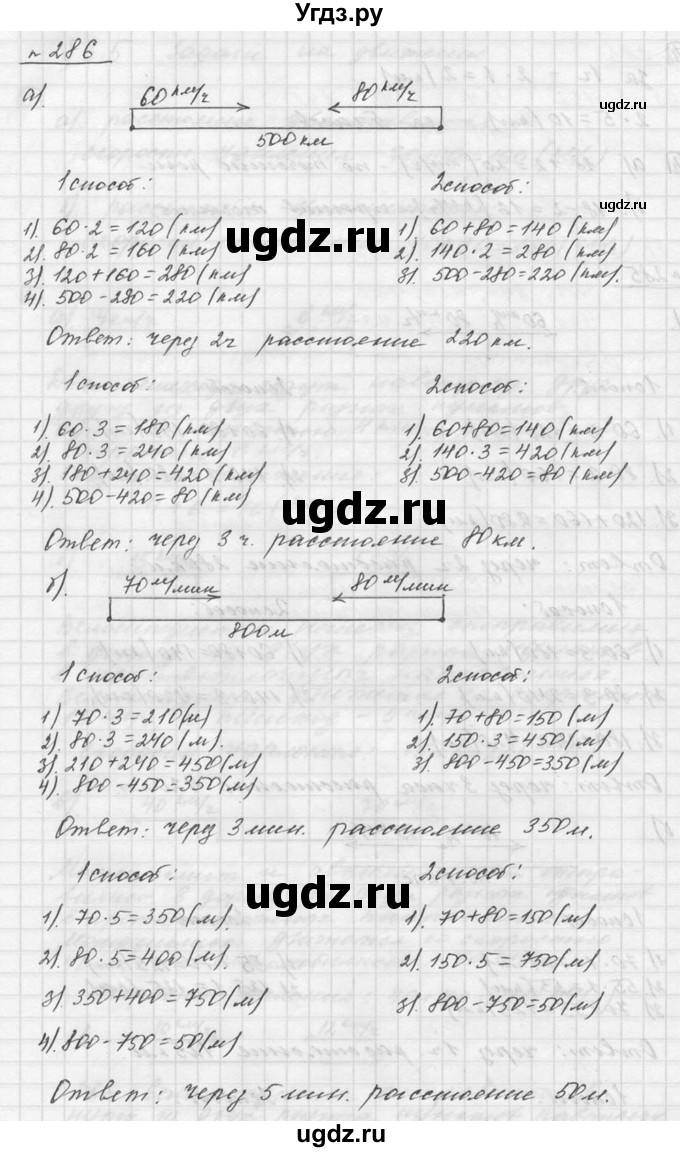 Угдз.ру
©ugdz.ru
№ 286
а).
60 км/ч 80 км/ч
500 км
1 способ: 2 способ:
1). 60·2=120 (км) 1) 60+80=140 (км)
2). 80·2=160 (км) 2). 140·2=280 (км)
3). 120+160=280 (км) 3). 500-280=220 (км).
4). 500-280=220 (км)
ugdz.ru
Ответ: через 2ч расстояние 220 км.
1 способ: 2 способ:
1). 60·3=180 (км) 1). 60+80=140 (км)
2). 80·3=240 (км) 2). 140·3=420 (км)
3). 180+240=420 (км) 3). 500-420=80 (км)
4). 500-420=80 (км)
ugdz.ru
Ответ: через 3 ч. расстояние 80 км.
б).
70 м/мин 80 м/мин
800 м
1 способ: 2 способ:
1) 70·3=210 (м) 1). 70+80=150 (м)
2). 80·3=240 (м). 2). 150·3=450 (м)
3). 210+240=450 (м) 3). 800-450=350 (м)
4). 800-450=350 (м)
Ответ: через 3 мин. расстояние 350 м.
1 способ: 2 способ:
ugdz.ru
1). 70·5=350 (м) 1). 70+80=150 (м)
2). 80·5=400 (м). 2). 150·5=750 (м)
3). 350+400=750 (м) 3). 800-750=50 (м)
4). 800-750=50 (м)
Ответ: через 5 мин. расстояние 50 м.
ugdz.ru